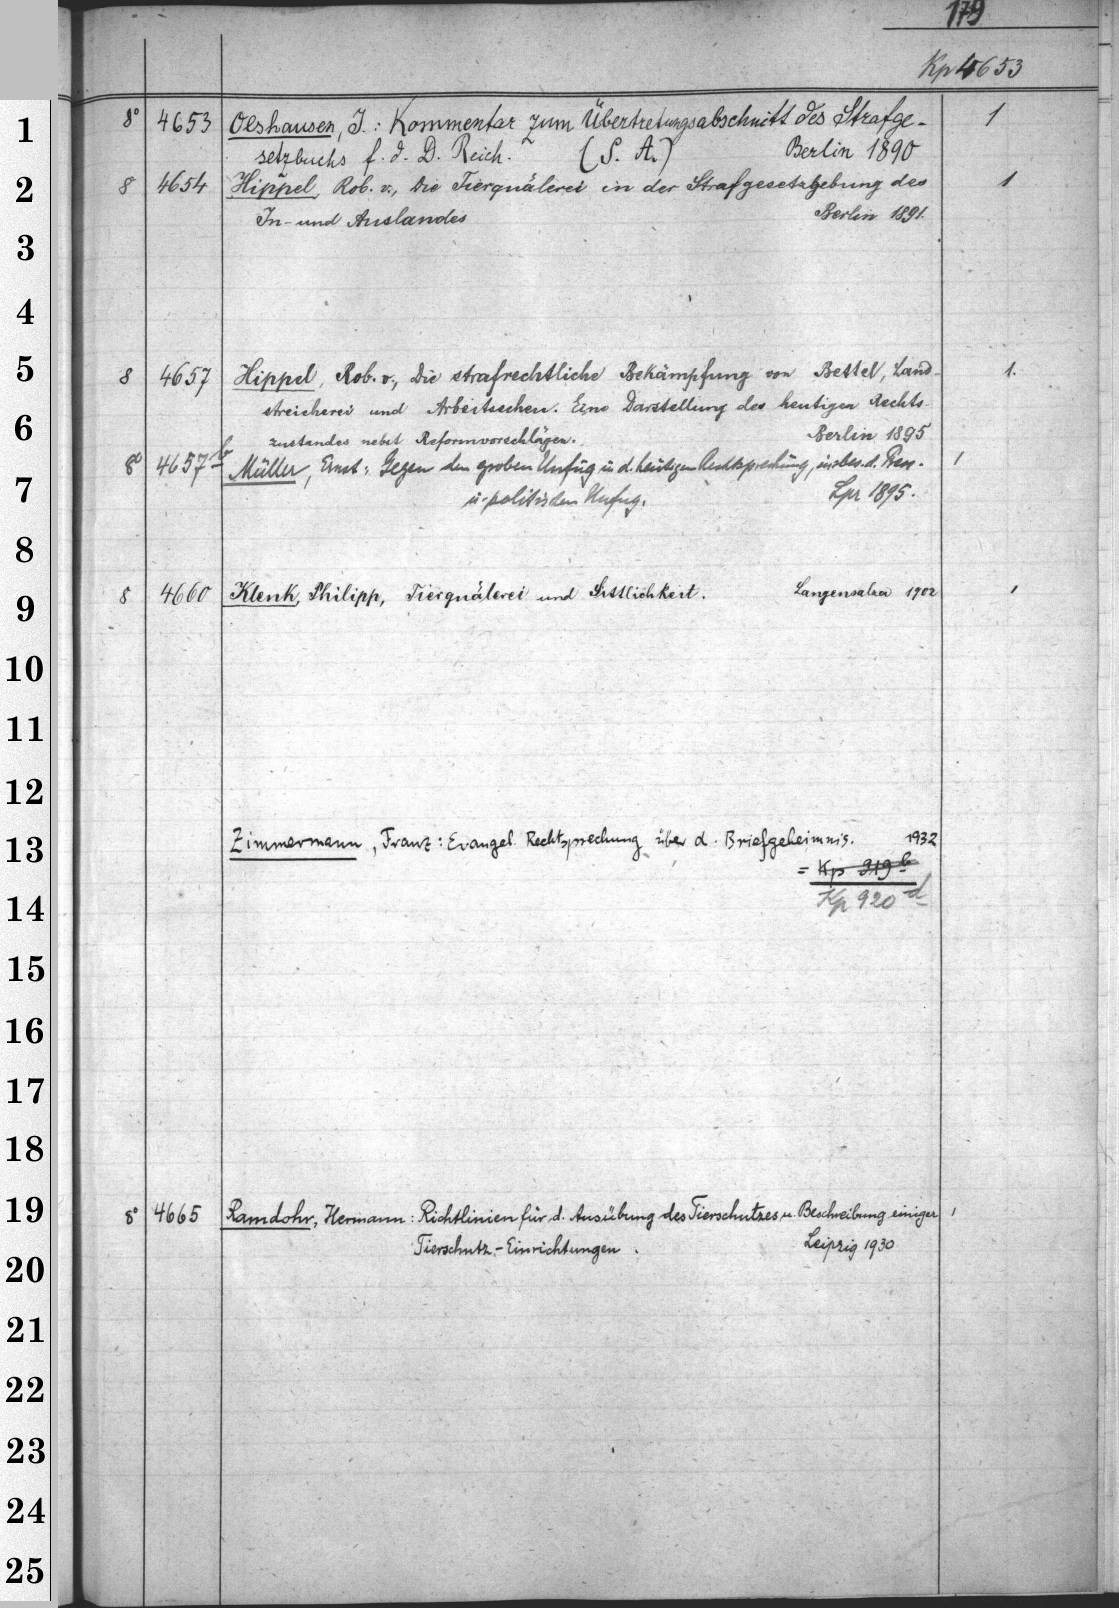 179
Kp 4653
1 8° 4653 Olshausen, J.: Kommentar zum Übertretungsabschnitt des Strafge- 1
setzbuchs f. d. D. Reich. (S. A.) Berlin 1890
2 8 4654 Hippel, Rob. v., Die Tierquälerei in der Strafgesetzgebung des 1
In- und Auslandes Berlin 1891.
3
4
5 8 4657 Hippel, Rob. v., Die strafrechtliche Bekämpfung von Bettel, Land- 1.
streicherei und Arbeitsscheu. Eine Darstellung des heutigen Rechts-
6 zustandes nebst Reformvorschlägen. Berlin 1895
8° 4657b Müller, Ernst: Gegen den groben Unfug in d. heutigen Rechtsprechung, insbes. d. Press- 1
7 u. politischen Unfug. Lpz 1895.
8
9 8 4660 Klenk, Philipp, Tierquälerei und Sittlichkeit. Langensalza 1902 1
10
11
12
13 Zimmermann, Franz: Evangel. Rechtsprechung über d. Briefgeheimnis. 1932
= Kp 919 b
14 Kp 920 d
15
16
17
18
19 8° 4665 Ramdohr, Hermann: Richtlinien für d. Ausübung des Tierschutzes u. Beschreibung einiger 1
Tierschutz-Einrichtungen. Leipzig 1930
20
21
22
23
24
25